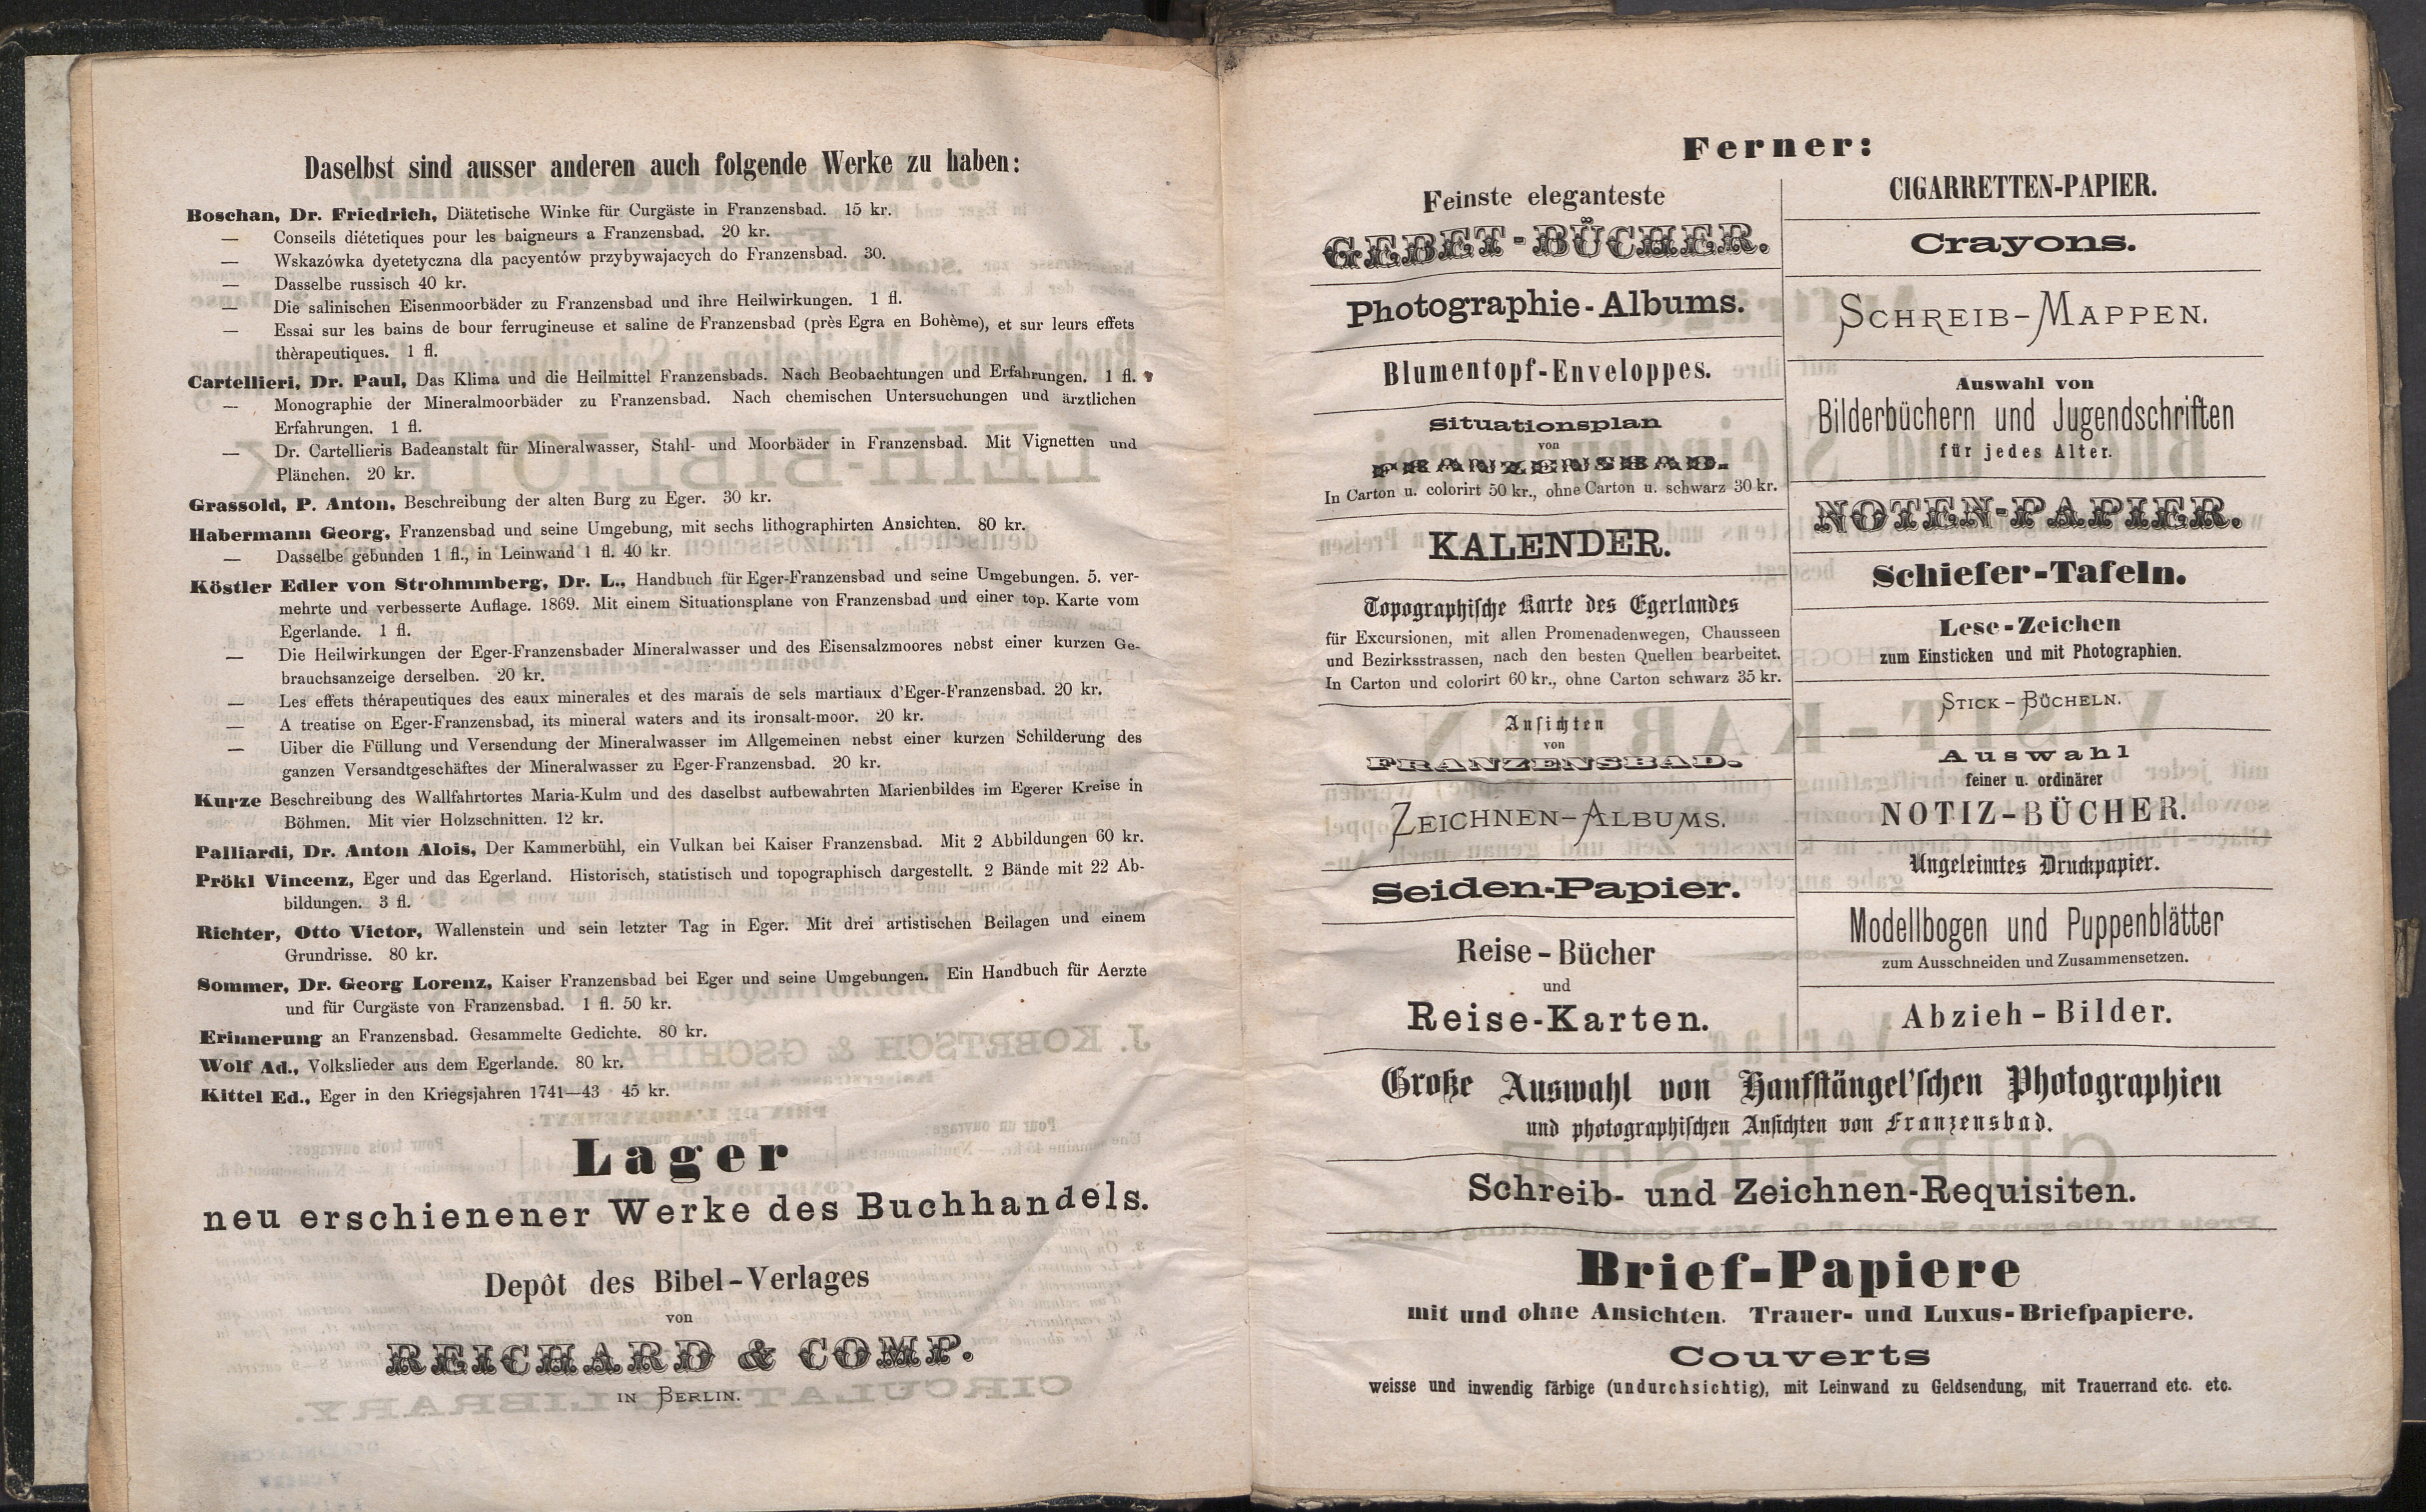 Daselbst sind ausser anderen auch folgende Werke zu haben:
Boschan, Dr. Friedrich, Diätetische Winke für Curgäste in Franzensbad. 15 kr.
— Conseils diétetiques pour les baigneurs a Franzensbad. 20 kr.
— Wskazówka dyetetyczna dla pacyentów przybywajacych do Franzensbad. 30.
— Dasselbe russisch 40 kr.
— Die salinischen Eisenmoorbäder zu Franzensbad und ihre Heilwirkungen. 1 fl.
— Essai sur les bains de bour ferrugineuse et saline de Franzensbad (près Egra en Bohème), et sur leurs effets
thèrapeutiques. 1 fl.
Cartellieri, Dr. Paul, Das Klima und die Heilmittel Franzensbads. Nach Beobachtungen und Erfahrungen. 1 fl.
— Monographie der Mineralmoorbäder zu Franzensbad. Nach chemischen Untersuchungen und ärztlichen
Erfahrungen. 1 fl.
— Dr. Cartellieris Badeanstalt für Mineralwasser, Stahl- und Moorbäder in Franzensbad. Mit Vignetten und
Plänchen. 20 kr.
Grassold, P. Anton, Beschreibung der alten Burg zu Eger. 30 kr.
Habermann Georg, Franzensbad und seine Umgebung, mit sechs lithographirten Ansichten. 80 kr.
— Dasselbe gebunden 1 fl., in Leinwand 1 fl. 40 kr.
Köstler Edler von Strohmmberg, Dr. L., Handbuch für Eger-Franzensbad und seine Umgebungen. 5. ver-
mehrte und verbesserte Auflage. 1869. Mit einem Situationsplane von Franzensbad und einer top. Karte vom
Egerlande. 1 fl.
— Die Heilwirkungen der Eger-Franzensbader Mineralwasser und des Eisensalzmoores nebst einer kurzen Ge-
brauchsanzeige derselben. 20 kr.
— Les effets thérapeutiques des eaux minerales et des marais de sels martiaux d'Eger-Franzensbad. 20 kr.
— A treatise on Eger-Franzensbad, its mineral waters and its ironsalt-moor. 20 kr.
— Uiber die Füllung und Versendung der Mineralwasser im Allgemeinen nebst einer kurzen Schilderung des
ganzen Versandtgeschäftes der Mineralwasser zu Eger-Franzensbad. 20 kr.
Kurze Beschreibung des Wallfahrtortes Maria-Kulm und des daselbst aufbewahrten Marienbildes im Egerer Kreise in
Böhmen. Mit vier Holzschnitten. 12 kr.
Palliardi, Dr. Anton Alois, Der Kammerbühl, ein Vulkan bei Kaiser Franzensbad. Mit 2 Abbildungen 60 kr.
Prökl Vincenz, Eger und das Egerland. Historisch, statistisch und topographisch dargestellt. 2 Bände mit 22 Ab-
bildungen. 3 fl.
Richter, Otto Victor, Wallenstein und sein letzter Tag in Eger. Mit drei artistischen Beilagen und einem
Grundrisse. 80 kr.
Sommer, Dr. Georg Lorenz, Kaiser Franzensbad bei Eger und seine Umgebungen. Ein Handbuch für Aerzte
und für Curgäste von Franzensbad. 1 fl. 50 kr.
Erinnerung an Franzensbad. Gesammelte Gedichte. 80 kr.
Wolf Ad., Volkslieder aus dem Egerlande. 80 kr.
Kittel Ed., Eger in den Kriegsjahren 1741—43 45 kr.
Lager
neu erschienener Werke des Buchhandels.
Depôt des Bibel-Verlages
von
REICHARD & COMP.
IN BERLIN.
Ferner:
Feinste eleganteste
GEBET-BÜCHER.
Photographie-Albums.
Blumentopf-Enveloppes.
Situationsplan
von
FRANZENSBAD.
In Carton u. colorirt 50 kr., ohne Carton u. schwarz 30 kr.
KALENDER.
Topographische Karte des Egerlandes
für Excursionen, mit allen Promenadenwegen, Chausseen
und Bezirksstrassen, nach den besten Quellen bearbeitet.
In Carton und colorirt 60 kr., ohne Carton schwarz 35 kr.
Ansichten
von
FRANZENSBAD.
ZEICHNEN-ALBUMS.
Seiden-Papier.
Reise-Bücher
und
Reise-Karten.
CIGARRETTEN-PAPIER.
Crayons.
SCHREIB-MAPPEN.
Auswahl von
Bilderbüchern und Jugendschriften
für jedes Alter.
NOTEN-PAPIER.
Schiefer-Tafeln.
Lese-Zeichen
zum Einsticken und mit Photographien.
STICK-BÜCHELN.
Auswahl
feiner u. ordinärer
NOTIZ-BÜCHER.
Ungeleimtes Druckpapier.
Modellbogen und Puppenblätter
zum Ausschneiden und Zusammensetzen.
Abzieh-Bilder.
Große Auswahl von Hanfstängel'schen Photographien
und photographischen Ansichten von Franzensbad.
Schreib- und Zeichnen-Requisiten.
Brief-Papiere
mit und ohne Ansichten. Trauer- und Luxus-Briefpapiere.
Couverts
weisse und inwendig färbige (undurchsichtig), mit Leinwand zu Geldsendung, mit Trauerrand etc. etc.